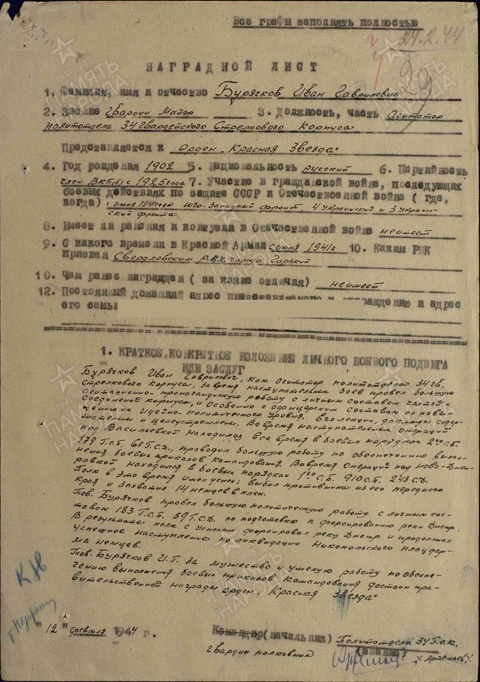 Все графы заполнять полностью
24.2.44
НАГРАДНОЙ ЛИСТ
1. Фамилия, имя и отчество Бурячков Иван Гаврилович
2. Звание Гвардии Майор 3. Должность, часть Агитатор
политотдела 34 Гвардейского Стрелкового Корпуса
Представляется к Орден „Красная Звезда"
4. Год рождения 1902 5. Национальность русский 6. Партийность
член ВКП(б) с 1925 года 7. Участие в гражданской войне, последующих
боевых действиях по защите СССР и Отечественной войне ( где,
когда) с июня 1941 года юго-Западный фронт, 4 Украинский и 3 Украин-
ский фронта
8. Имеет ли ранения и контузии в Отечественной войне неимеет
9. С какого времени в Красной Армии с июня 1941г 10. Каким РВК
призван Свердловским РВК города Горький
11. Чем ранее награжден ( за какие отличия) неимеет
12. Постоянный домашний адрес и адрес
его семьи
1. КРАТКОЕ, КОНКРЕТНОЕ ИЗЛОЖЕНИЕ ЛИЧНОГО БОЕВОГО ПОДВИГА
ИЛИ ЗАСЛУГ
Бурячков Иван Гаврилович, как Агитатор политотдела 34 гв.
Стрелкового корпуса, за время наступательных боев провел большую
агитационно-пропагандистскую работу с личным составом частей и
соединений корпуса, и особенно с офицерским составом по повы-
шению их идейно-политического уровня.
Во время наступательных операций
под Васильевкой находился все время в боевых порядках 2го С.Б.
179 Г.С.П. 61 Г.С.Д., проводил большую работу по обеспечению выпол-
нения боевых приказов Командования. Во время операций под
находился в боевых порядках 1го С.Б. 910 С.П. 243 С.Д.
Полк в это время имел успех: выбил противника из его переднего
края и захватил 14 немцев в плен.
Тов. Бурячков провел большую политическую работу с личным сос-
тавом 183 Г.С.П. 59 Г.С.Д. по подготовке к форсированию реки Днепр.
В результате полк с успехом форсировал реку Днепр и продолжал
успешное наступление по ликвидации Никопольского плацдар-
ма немцев.
Тов. Бурячков И.Г. за мужество и умелую работу по обеспе-
чению выполнения боевых приказов Командования достоин пра-
вительственной награды орден „Красная Звезда"
12 февраля 1944 г. Командир (начальник) Политотдела 34 Г.с.к.
гвардии полковник
(звание)